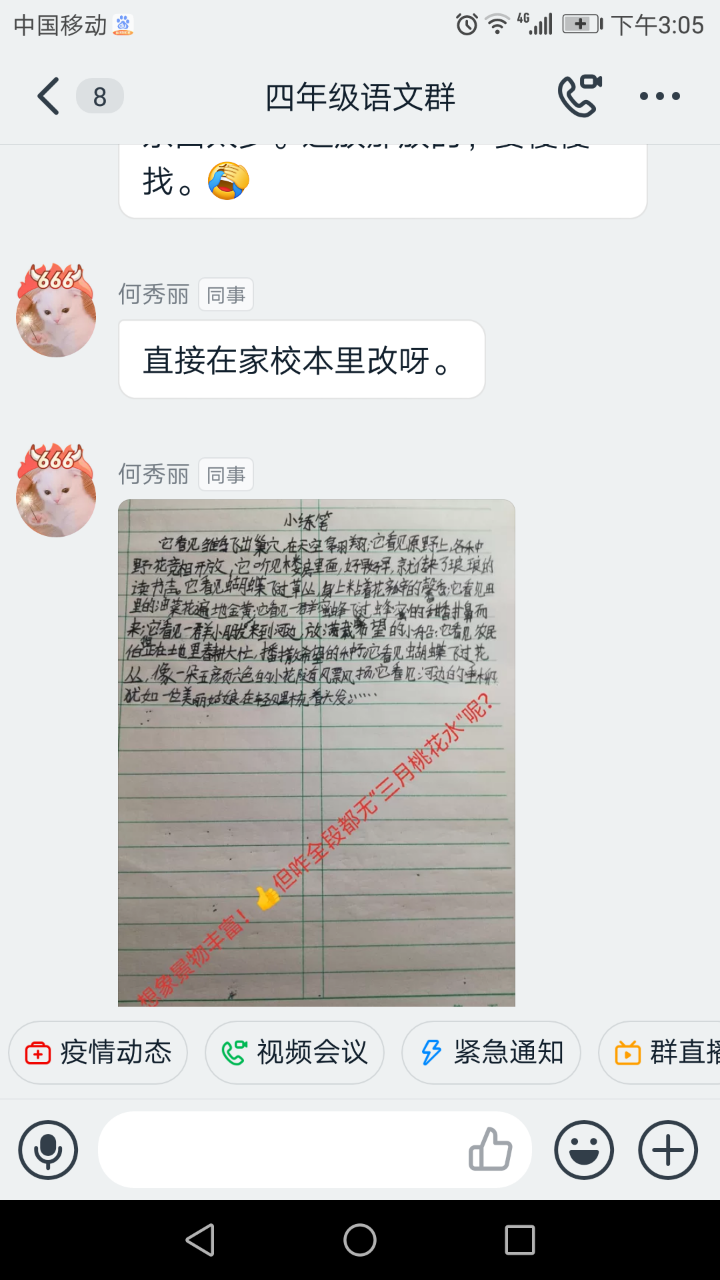 中国移动
4G
下午3:05
8
四年级语文群
找。
666
何秀丽 同事
直接在家校本里改呀。
666
何秀丽 同事
小练笔
它看见雏鸟飞出巢穴,在天空中翱翔;它看见原野上,各种
野花竞相开放;它听见楼房里面,
读书声;它看见蝴蝶飞过草丛,身上粘着花的馨香;它看见田
里的油菜花遍地金黄;它看见一群蜜蜂飞过,蜂蜜的甜香扑鼻而
来;它看见一群小朋友来到河边,放满载希望的小船;它看见农民
伯伯正在地里春耕大忙,播撒希望的种子;它看见蝴蝶飞过花
丛,像一朵五颜六色的小花随着风飘扬;它看见河边的垂柳
犹如一位美丽姑娘在轻梳着头发。……
想象景物丰富!👍但咋全段都无"三月桃花水"呢?
疫情动态
视频会议
紧急通知
群直播